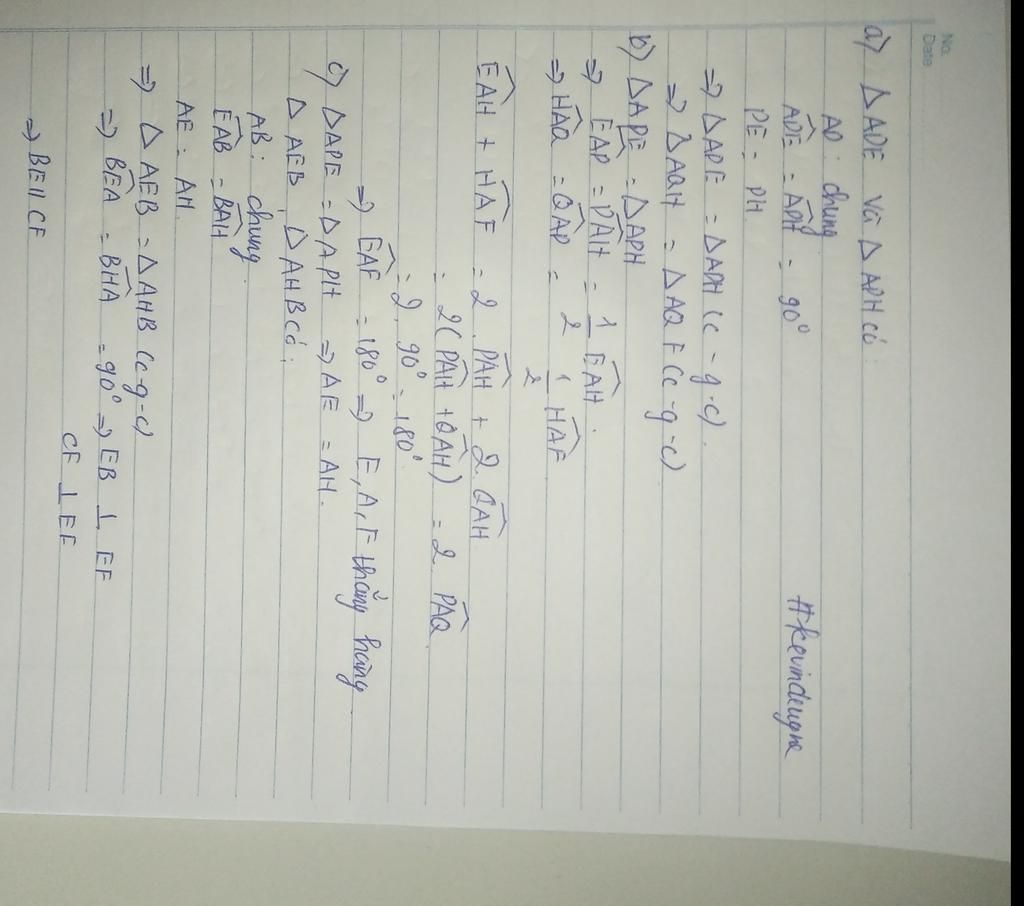 No.
Date
a) △ADE và △APH có:
AP: chung
ADE = APH = 90°
PE = PH
#kevindeugne
⇒ △APE = △APH (c-g-c).
⇒ △AQH = △AQF (c-g-c)
b) △APE = △APH
⇒ EAP = PAH = 1/2 EAH.
⇒ HAQ = QAP = 2 1/2 HAF
EAH + HAF = 2. PAH + 2. QAH
= 2(PAH + QAH) = 2. PAQ
= 2. 90° = 180°
⇒ EAF = 180° ⇒ E, A, F thẳng hàng
c) △APE = △APH ⇒ AE = AH.
△AEB, △AHB có:
AB: chung
EAB = BAH
AE = AH.
⇒ △AEB = △AHB (c-g-c)
⇒ BEA = BHA = 90° ⇒ EB ⊥ EF
CF ⊥ EF
⇒ BE∥CF